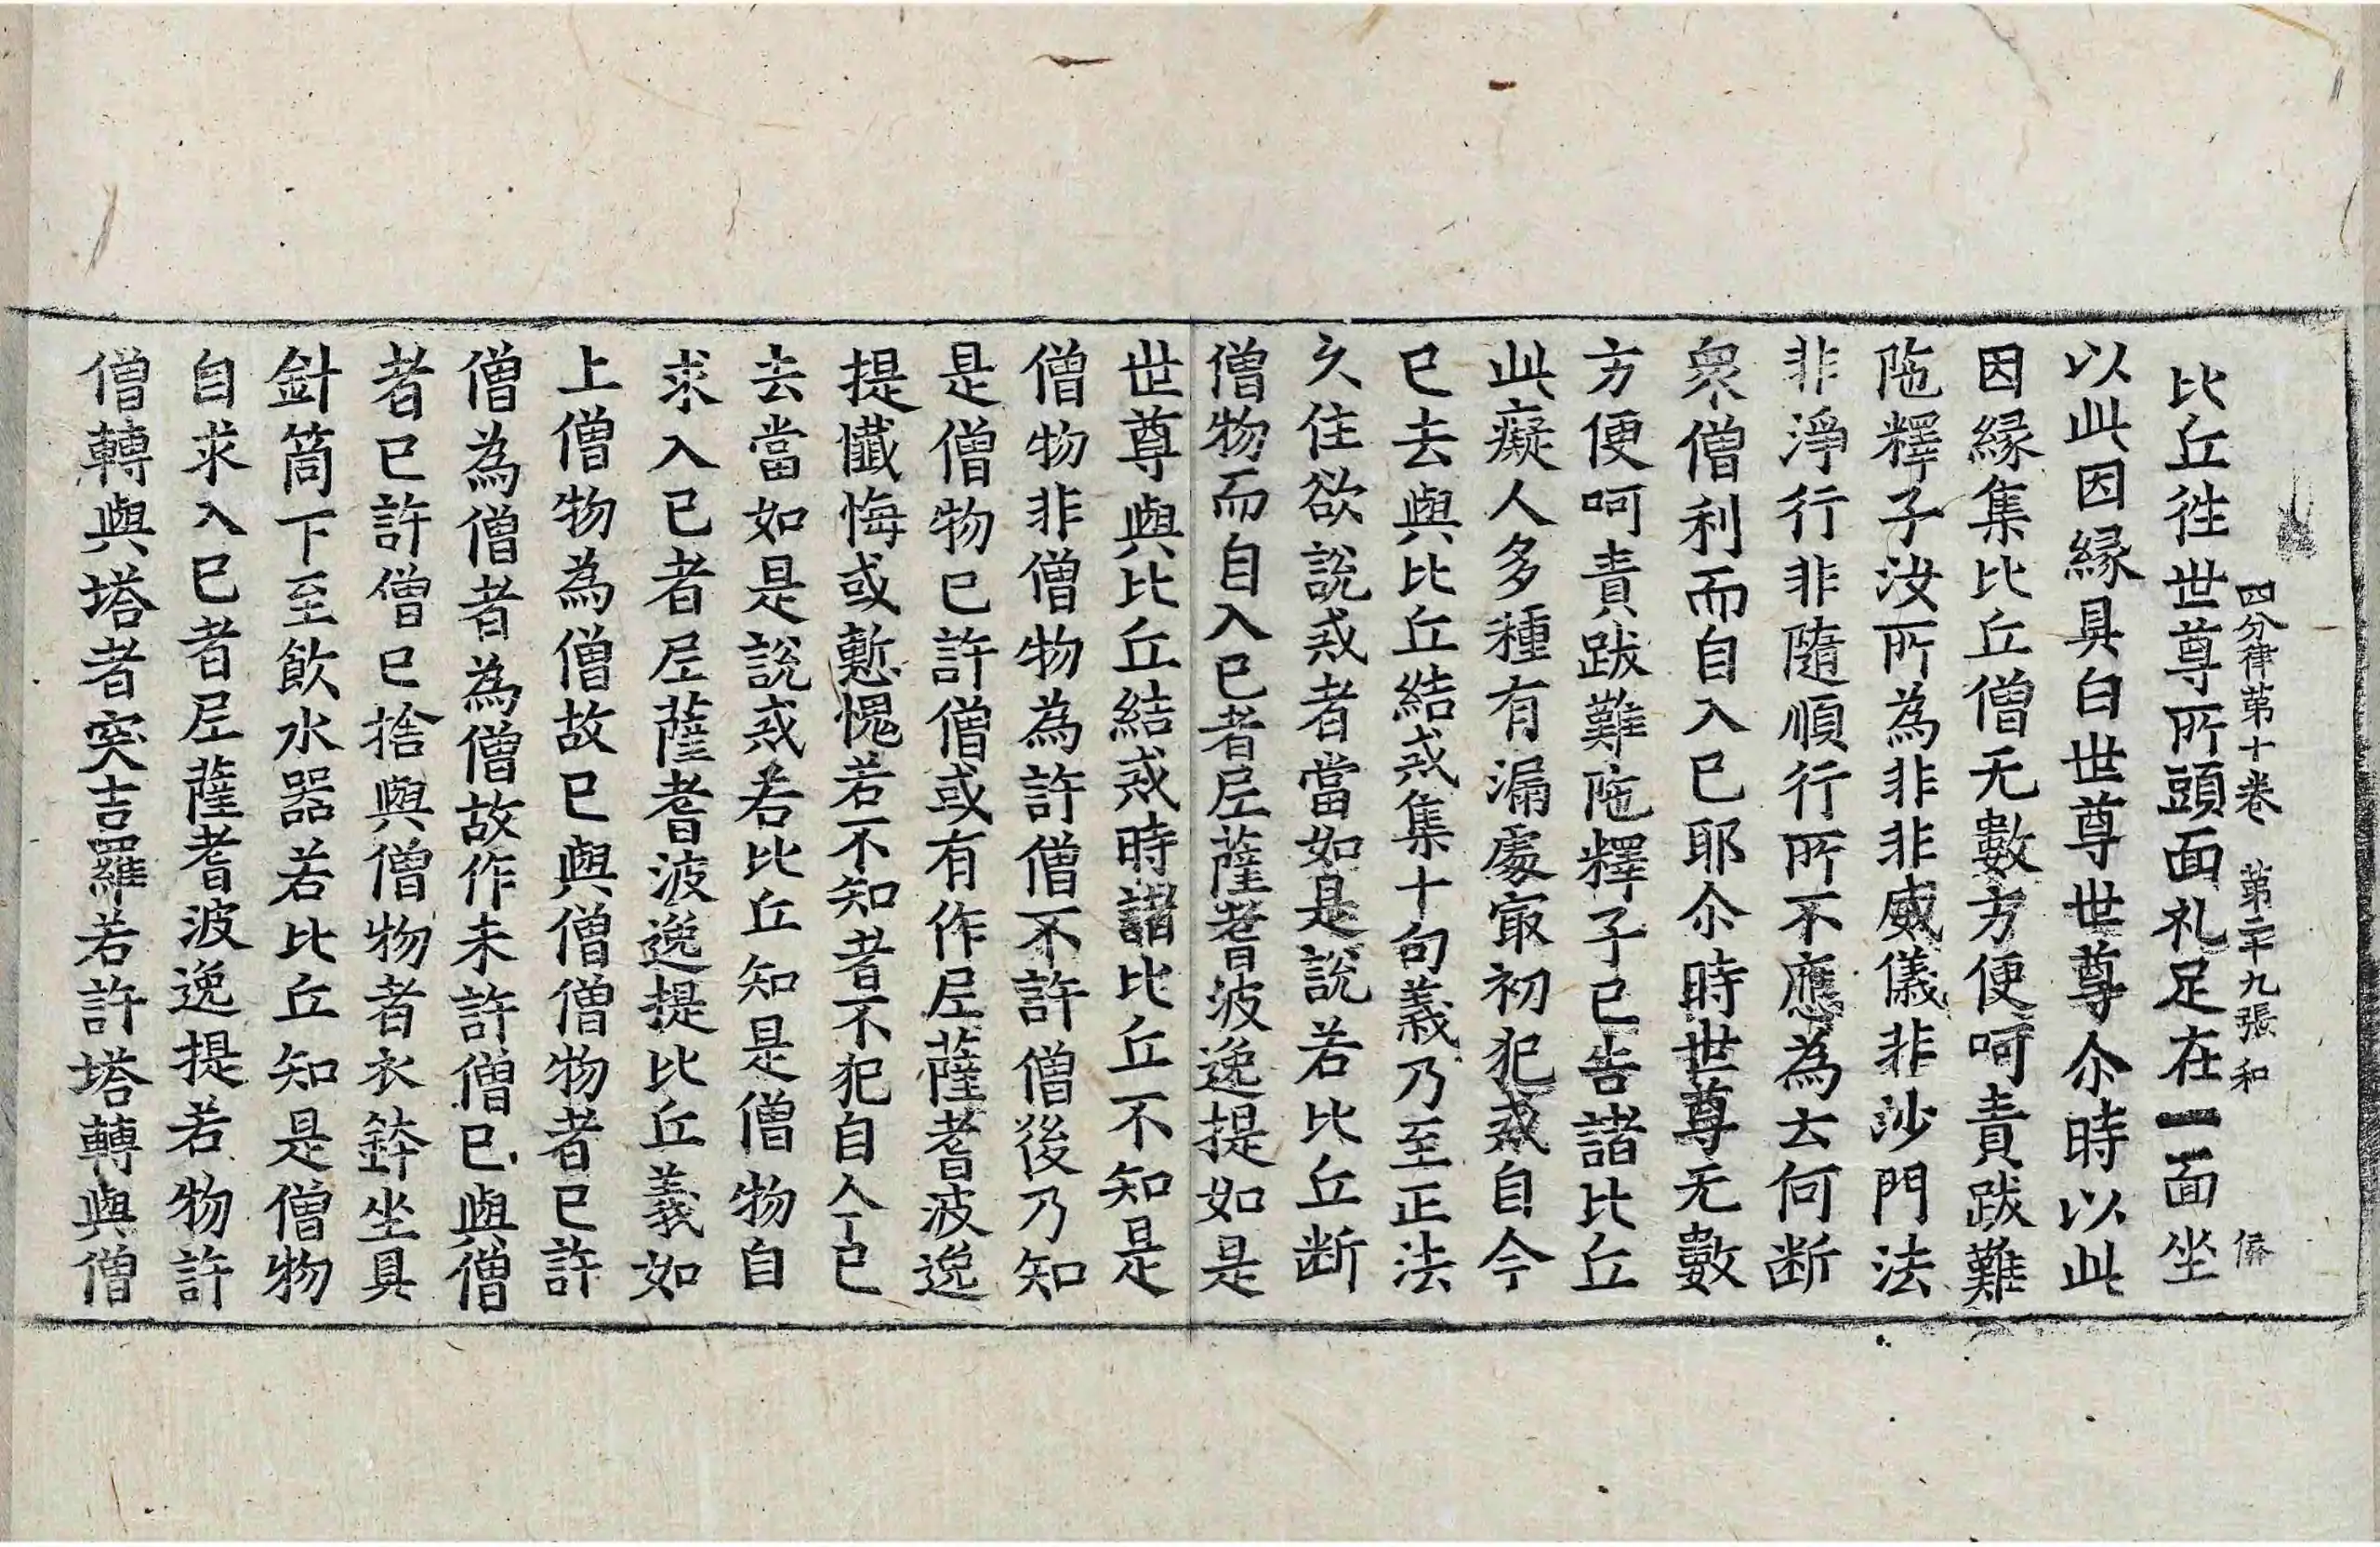 四分律第十卷　第二十九張　和
比丘徃世尊所頭面礼足在一面坐
以此因縁具白世尊世尊尒時以此
因縁集比丘僧无數方便呵責跋難
陁釋子汝所為非非威儀非沙門法
非淨行非隨順行所不應為云何断
衆僧利而自入已耶尒時世尊无數
方便呵責跋難陁釋子已告諸比丘
此癡人多種有漏處㝡初犯戒自今
已去與比丘結戒集十句義乃至正法
久住欲說戒者當如是說若比丘断
僧物而自入已者尼薩耆波逸提如是
世尊與比丘結戒時諸比丘不知是
僧物非僧物為許僧不許僧後乃知
是僧物已許僧或有作尼薩耆波逸
提懺悔或慙愧若不知者不犯自今已
去當如是說戒若比丘知是僧物自
求入已者尼薩耆波逸提比丘義如
上僧物為僧故已與僧僧物者已許
僧為僧者為僧故作未許僧已與僧
者已許僧已捨與僧物者衣鉢坐具
針筒下至飲水器若比丘知是僧物
自求入已者尼薩耆波逸提若物許
僧轉與塔者突吉羅若許塔轉與僧